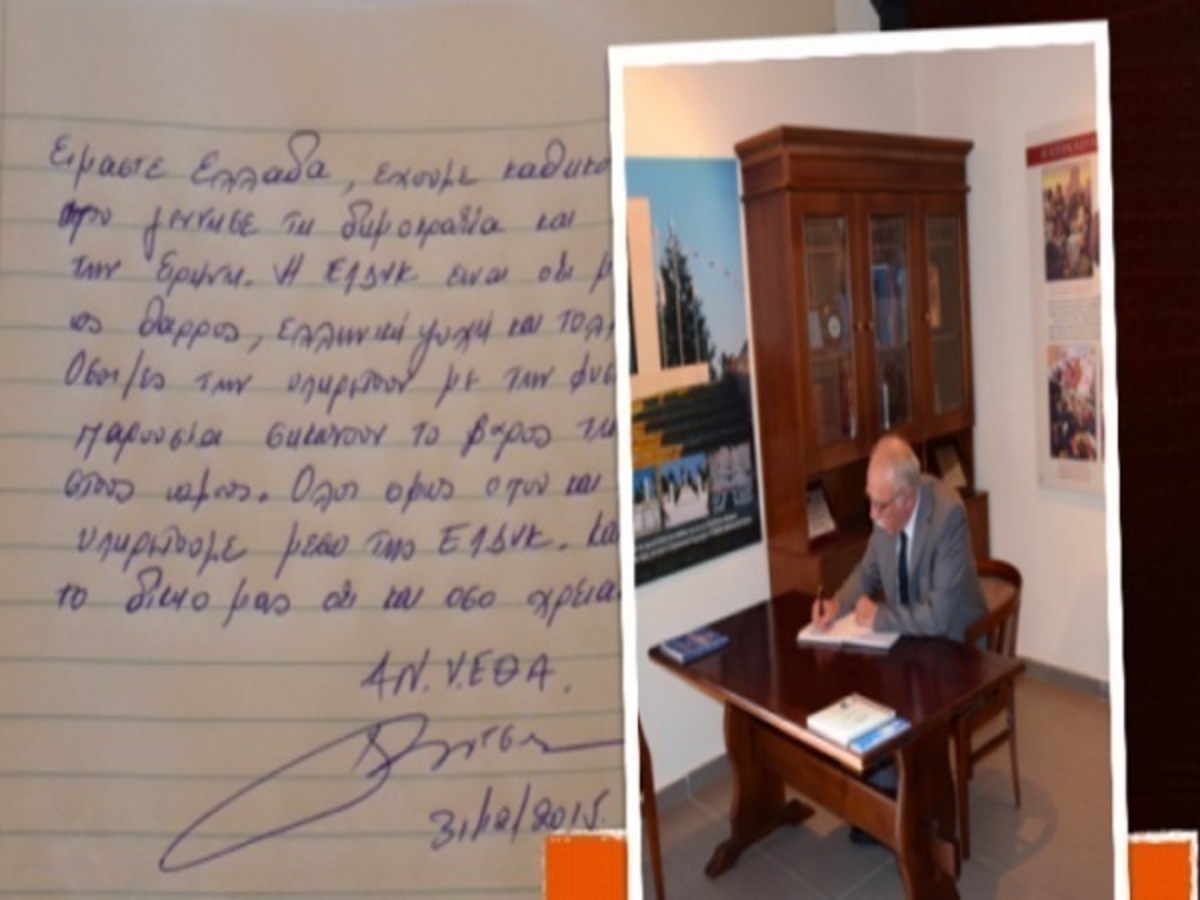 Ειμαστε Ελλαδα, εχουμε καθηκο
που γεννησε τη δημοκρατία και
την Ειρηνη. Η ΕΛΔΥΚ ειναι οτι μ
ως θαρρος, ελληνική ψυχή και τολμ
Οσοι/ες την υπηρετουν με την φυσ
παρουσία σηκωνουν το βαρος τη
στους ωμους. Ολοι ομως οπου και
υπηρετουμε μεσο της ΕΛΔΥΚ. και
το δικιο μας οτι και οσο χρεια
ΑΝ.Υ.ΕΘΑ.
31/12/2015.